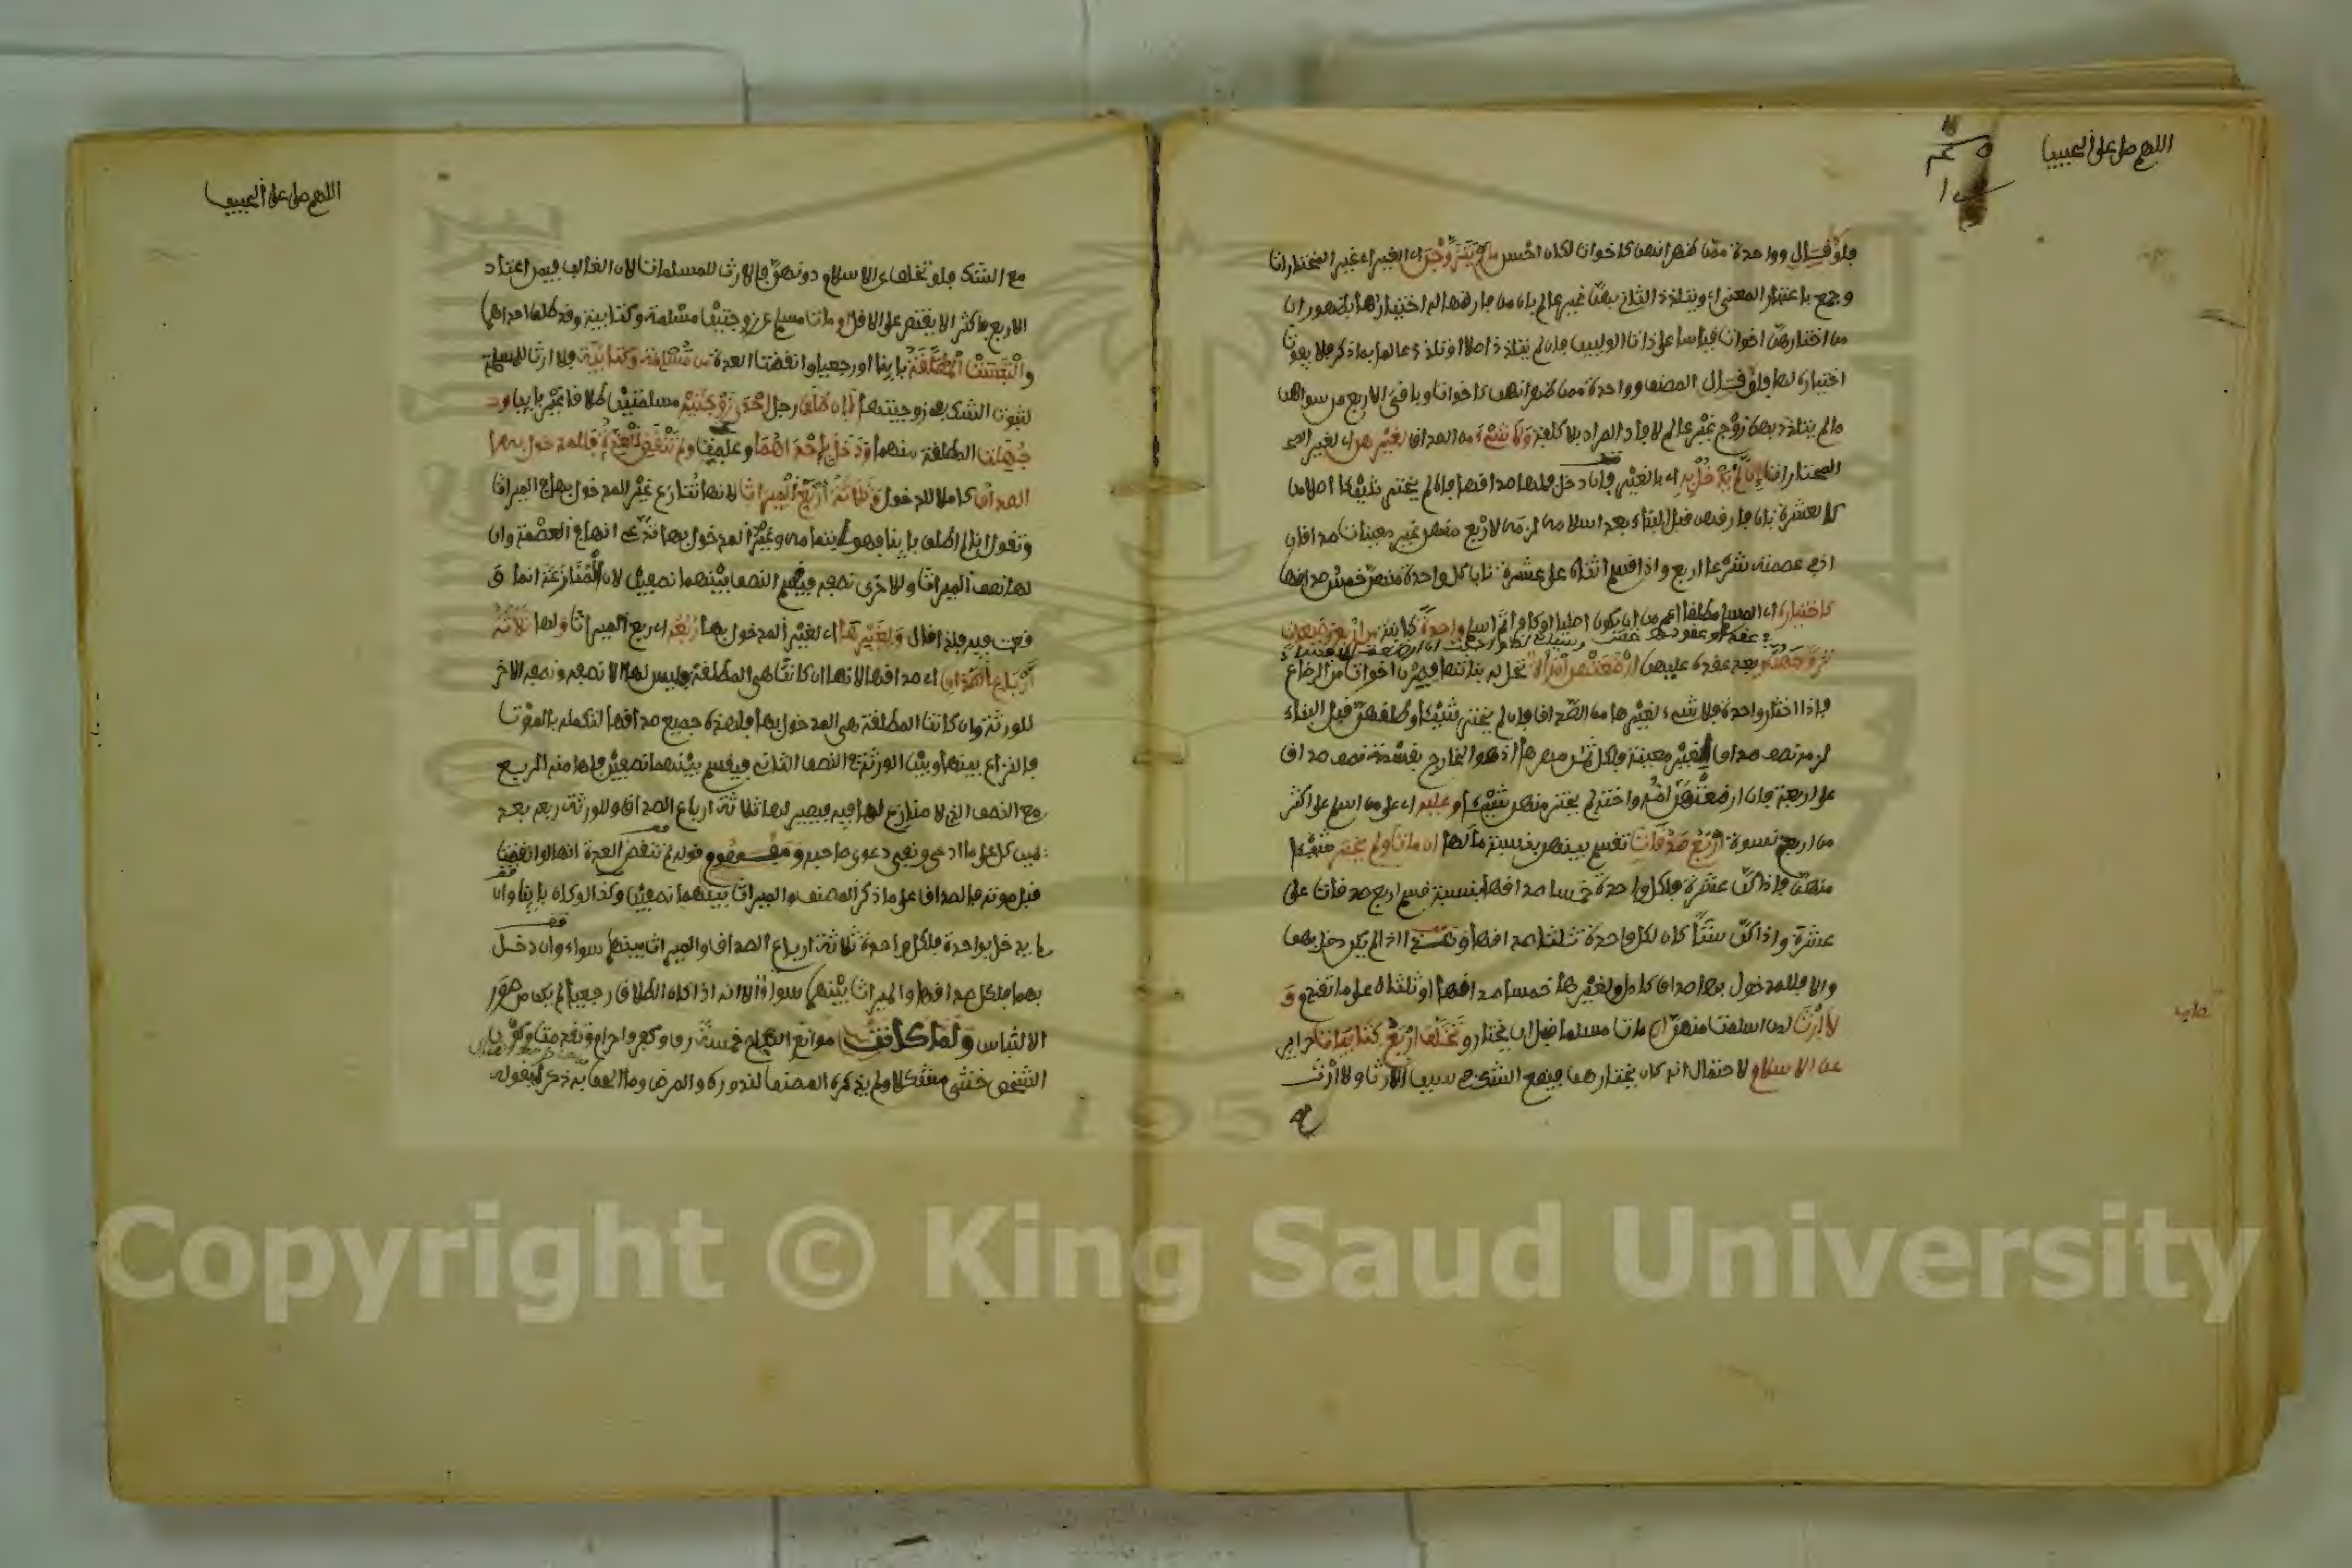 اللهم صل على الحبيب
فلو قال وواحدة ممن ظهر انهن كاخوات لكان احسن ما لم يتزوجن اي الغير اي غير المختارات
وجمع باعتبار المعنى او يتلذذ الثاني بهن غير عالم بان من فارقها له اختيارها بظهور ان
من اختارهن اخوات قياسا على ذات الوليين فان لم يتلذذ اصلا او تلذذ عالما بما ذكر فلا يفوت
اختياره لها فلو قال المصنف وواحدة ممن ظهر انهن كاخوات وباقي الاربع من سواهن
ما لم يتلذذ بهن زوج غير عالم لافاد المراد بلا كلفة ولا شيء من الصداق لغيرهن اي لغير
المختارات ان لم يدخل به اي بالغير فان دخل فلها صداقها فان لم يختر شيئا اصلا من
كالعشرة بان فارقهن قبل البناء بعد اسلامه لزمه لاربع منهن غير معينات صداقان
اذ في عصمته شرعا اربع واذا قسم اثنان على عشرة ناب كل واحدة منهن خمس صداقها
كاختياره اي المسلم مطلقا اعم من ان يكون اصليا او كافرا اسلم واحدة كاينة من اربع رضيعات
تزوجهن بعد عقده عليهن ارضعتهن امراة تحل له بناتها فصرن اخوات من الرضاع
فاذا اختار واحدة فلا شيء لغيرها من الصداق فان لم يختر شيئا وطلقهن قبل البناء
لزمه نصف صداق لغير معينة فلكل ثمن مهرها اذ هو الخارج بقسمة نصف صداق
على اربعة فان ارضعتهن امه واخته لم يختر منهن شيئا وعليه اي على من اسلم على اكثر
من اربع نسوة اربع صدقات تقسم بينهن بنسبة مالها ان مات ولم يختر شيئا
منهن فاذا كن عشرة فلكل واحدة خمسا صداقها بنسبة قسم اربع صدقات على
عشرة واذا كن ستا كان لكل واحدة ثلثا صداقها وهذا اذا لم يكن دخل بهن
والا فللمدخول بها صداق كامل ولغيرها خمسا صداقها او ثلثاه على ما تقدم و
لا ارث لمن اسلمت منهن ان مات مسلما قبل ان يختار وتخلف اربع كتابيات حراير
عن الاسلام لاحتمال انه كان يختارهن فيقع الشك في سبب الارث ولا ارث
اللهم صل على الحبيب
مع الشك فلو تخلف عن الاسلام دونهن فالارث للمسلمات لان الغالب فيمن اعتاد
الاربع فاكثر الا يقتصر على الاقل او مات مسلم عن زوجتين مسلمة وكتابية وقد طلق احداهما
والتبست المطلقة باينا او رجعيا وانقضت العدة من مسلمة وكتابية فلا ارث للمسلمة
لثبوت الشك في زوجيتها لا ان طلق رجل احدى زوجتيه مسلمتين طلاقا غير باين و
جهلت المطلقة منهما ودخل باحداهما وعلمت ولم تنقض العدة فللمدخول بها
الصداق كاملا للدخول وثلاثة ارباع الميراث لانها تنازع غير المدخول بها في الميراث
وتقول انا لم اطلق باينا فهو بيننا وغير المدخول بها تدعي انها في العصمة وان
لها نصف الميراث وللاخرى نصفه فيقسم النصف بينهما نصفين لان المنازعة انما
وقعت فيه فلذا قال ولغيرها اي لغير المدخول بها ربعه اي ربع الميراث ولها ثلاثة
ارباع الصداق اي صداقها لانها ان كانت هي المطلقة فليس لها الا نصفه ونصفه الاخر
للورثة وان كانت المطلقة هي المدخول بها فلهذه جميع صداقها لتكمله بالموت
فالنزاع بينها وبين الورثة في النصف الثاني فيقسم بينهما نصفين فلها منه الربع
مع النصف الذي لا منازع لها فيه فيصير لها ثلاثة ارباع الصداق وللورثة ربعه بعد
يمين كل على ما ادعى ونفي دعوى صاحبه ومفهوم قوله لم تنقض العدة انها لو انقضت
قبل موته فالصداق على ما ذكر المصنف والميراث بينهما نصفين وكذا لو كان باينا وان
لم يدخل بواحدة فلكل واحدة ثلاثة ارباع الصداق والميراث بينهما سواء وان دخل
بهما فلكل صداقها والميراث بينهما سواء الا انه اذا كان الطلاق رجعيا لم يكن من صور
الالتباس ولما كانت موانع النكاح خمسة رق وكفر واحرام وتقدمت وكون
الشخص خنثى مشكلا ولم يذكره المصنف لندوره والمرض وما الحق به ذكره بقوله